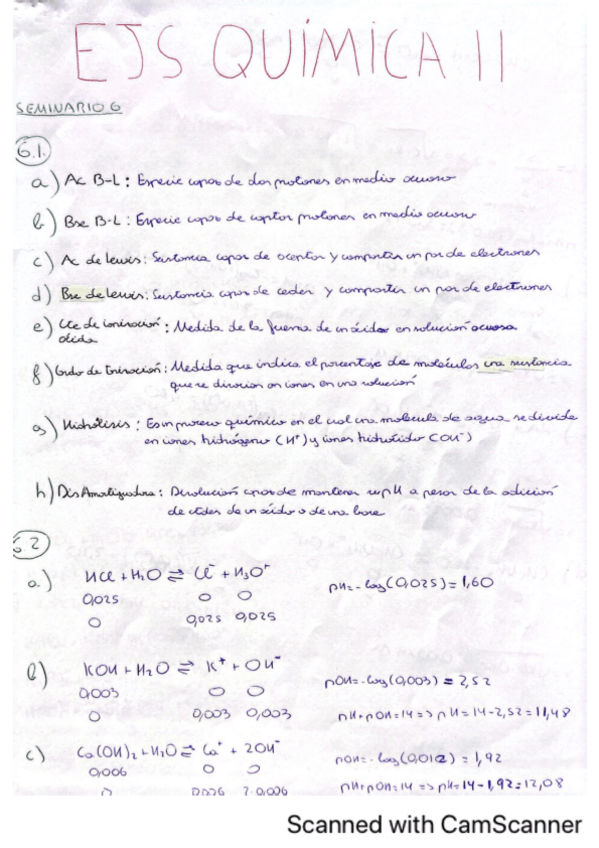 EJS QUÍMICA II
SEMINARIO 6
6.1.
a) Ac B-L: Especie capaz de dar protones en medio acuoso
b) Bse B-L: Especie capaz de captar protones en medio acuoso
c) Ac de Lewis: Sustancia capaz de aceptar y compartir un par de electrones
d) Bse de Lewis: Sustancia capaz de ceder y compartir un par de electrones
e) Cte de ionización: Medida de la fuerza de un ácido en solución acuosa
ácida
f) Grado de Ionización: Medida que indica el porcentaje de moléculas una sustancia
que se disocian en iones en una solución
g) Hidrólisis: Es un proceso químico en el cual una molécula de agua se divide
en iones hidrógeno (H⁺) y iones hidróxido (OH⁻)
h) Dis Amortiguadora: Disolución capaz de mantener su pH a pesar de la adición
de de un ácido o de una base
6.2
a.) HCl + H₂O ⇌ Cl⁻ + H₃O⁺
0,025 0 0 pH = -log(0,025) = 1,60
0 0,025 0,025
b) KOH + H₂O ⇌ K⁺ + OH⁻
0,003 0 0 pOH = -log(0,003) = 2,52
0 0,003 0,003 pH + pOH = 14 => pH = 14 - 2,52 = 11,48
c) Ca(OH)₂ + H₂O ⇌ Ca⁺ + 2OH⁻
0,006 0 0 pOH = -log(0,012) = 1,92
0 0,006 2·0,006 pH + pOH = 14 => pH = 14 - 1,92 = 12,08
Scanned with CamScanner